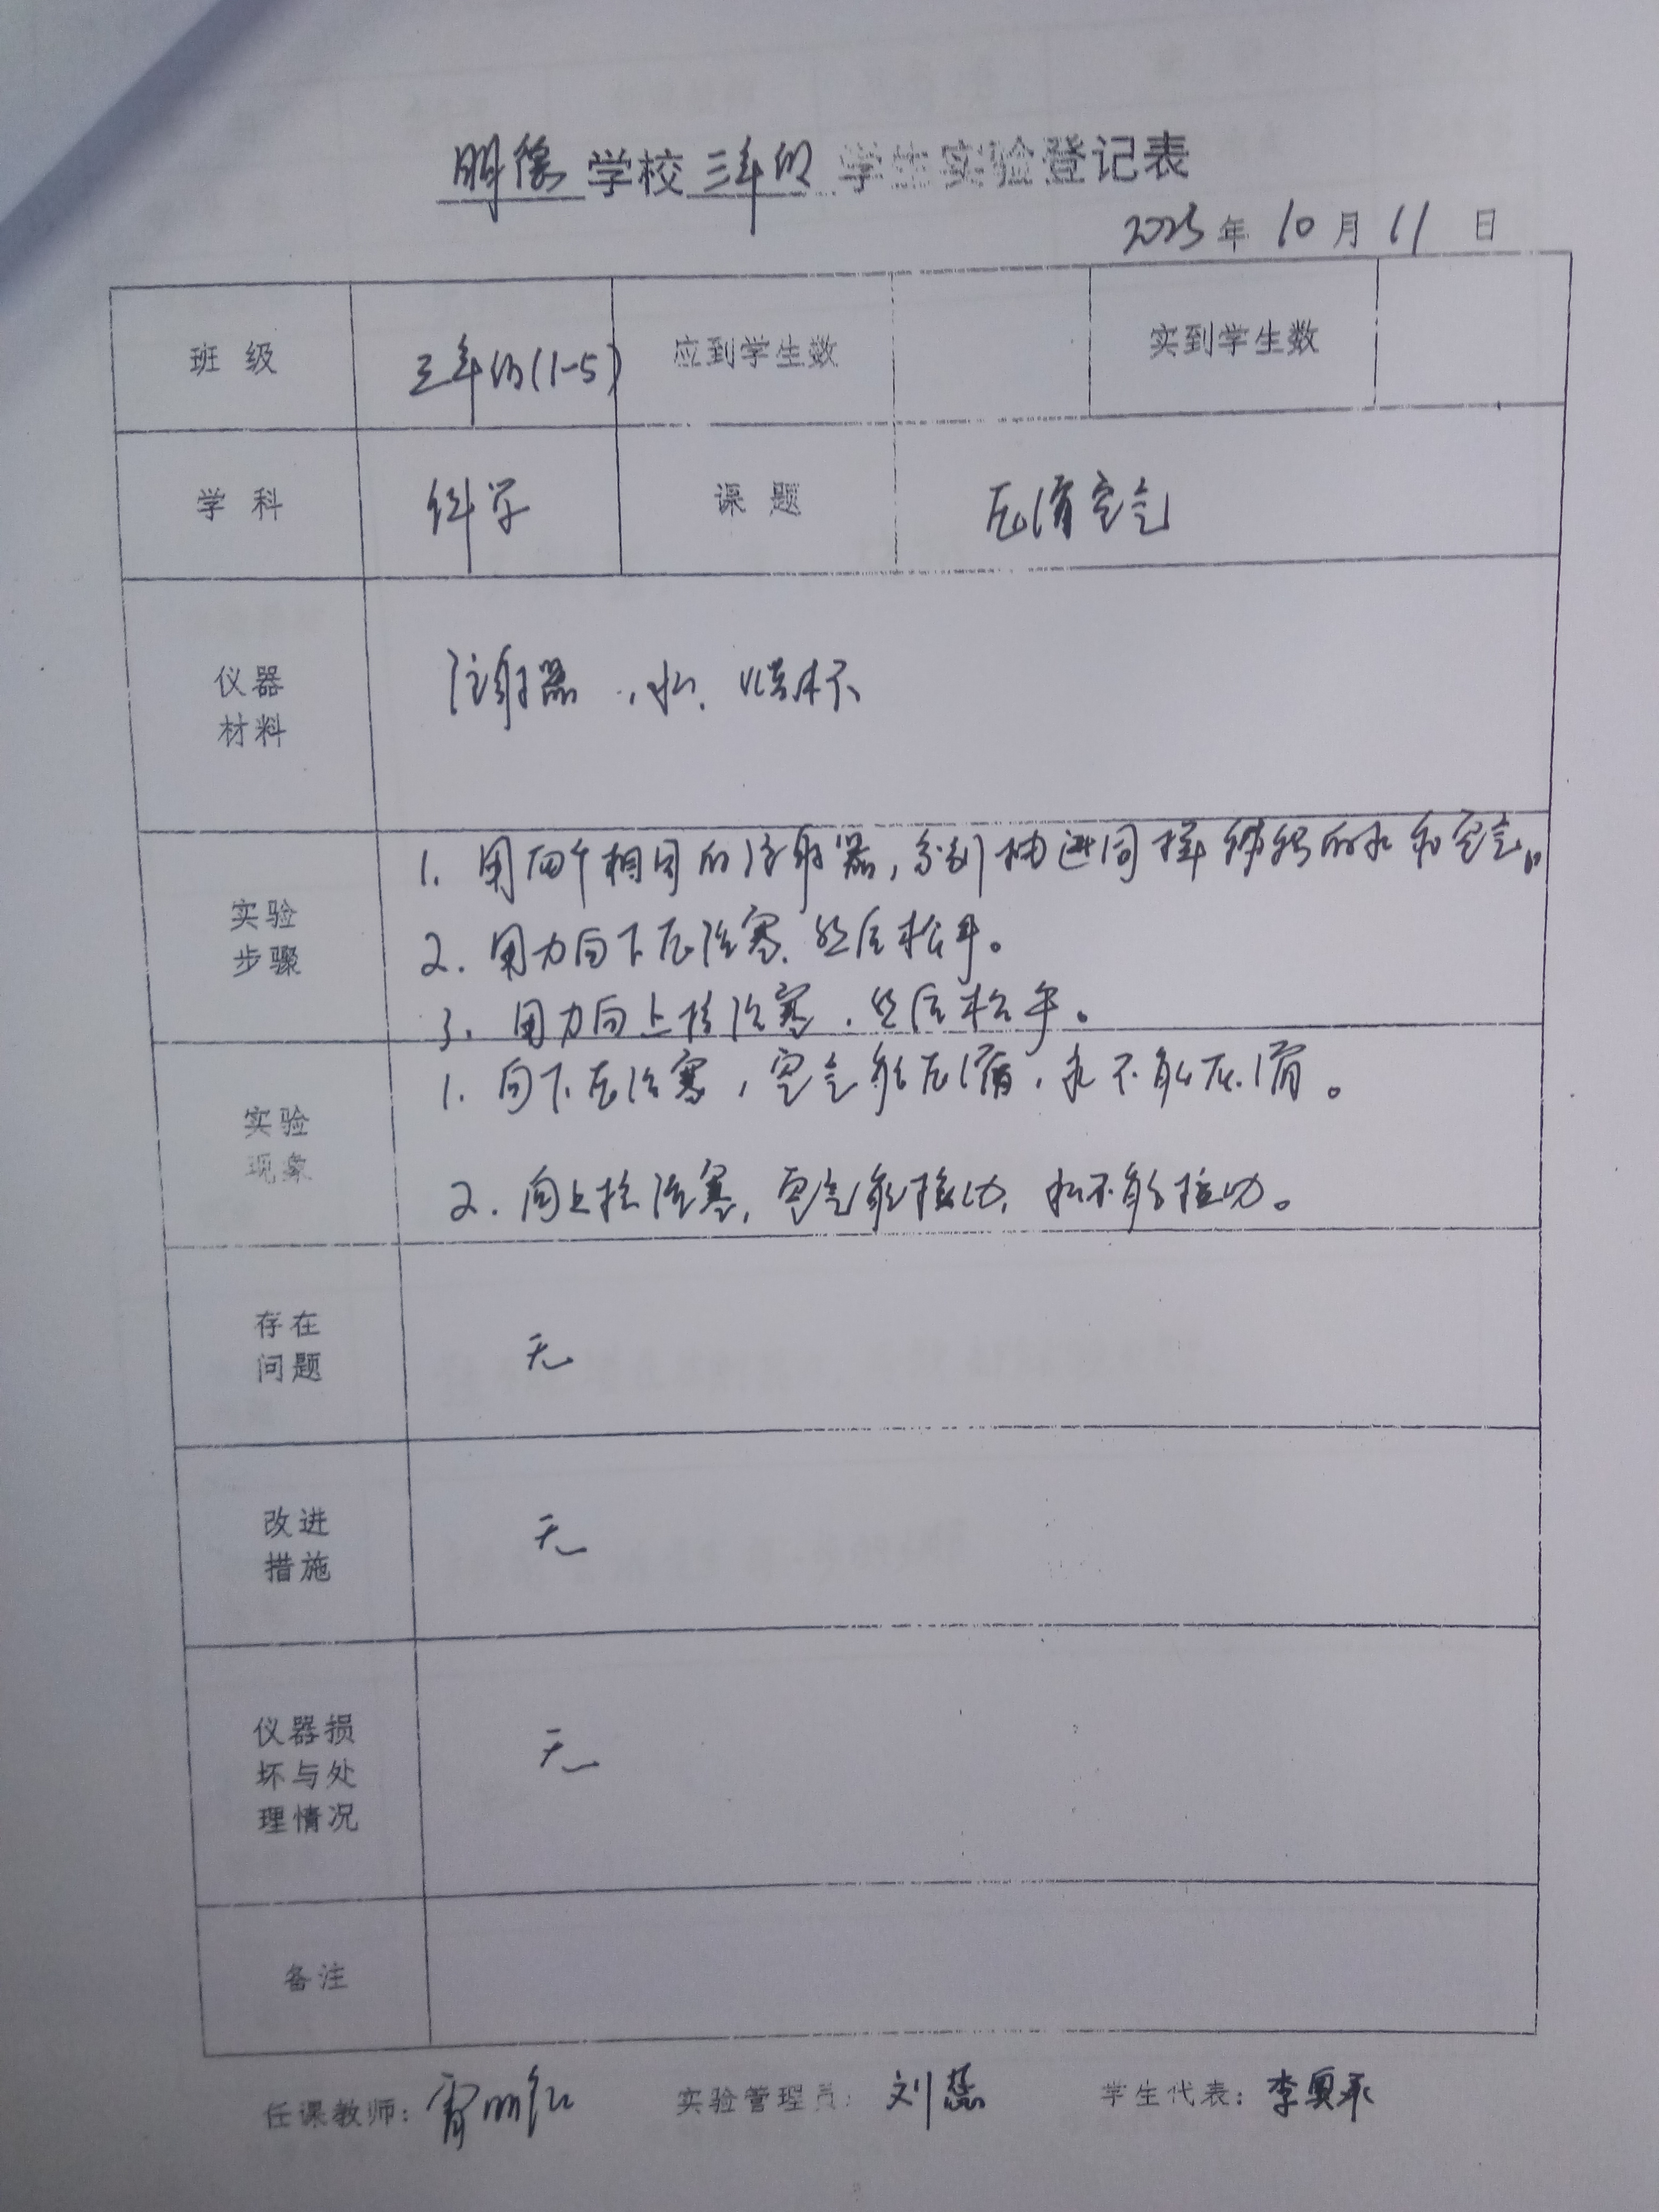 明德学校三年级学生实验登记表
2025年10月11日
班级 三年级(1-5) 应到学生数 实到学生数
学科 科学 课题 压缩空气
仪器
材料
注射器、水、烧杯
1. 用四个相同的注射器,分别抽进同样体积的水和空气。
实验
步骤
2. 用力向下压活塞,然后松手。
3. 用力向上拉活塞,然后松手。
1. 向下压活塞,空气能压缩,水不能压缩。
实验
现象
2. 向上拉活塞,空气能拉动,水不能拉动。
存在
问题
无
改进
措施
无
仪器损
坏与处
理情况
无
备注
任课教师: 实验管理员: 刘蕊 学生代表: 李奥